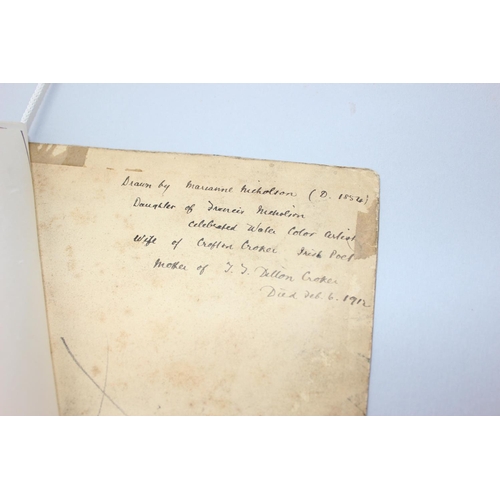 Drawn by Marianne Nicholson (D. 1854)
Daughter of Francis Nicholson
celebrated Water Color Artist
Wife of Crofton Croker Irish Poet
Mother of T. F. Dillon Croker
Died Feb 6. 1912